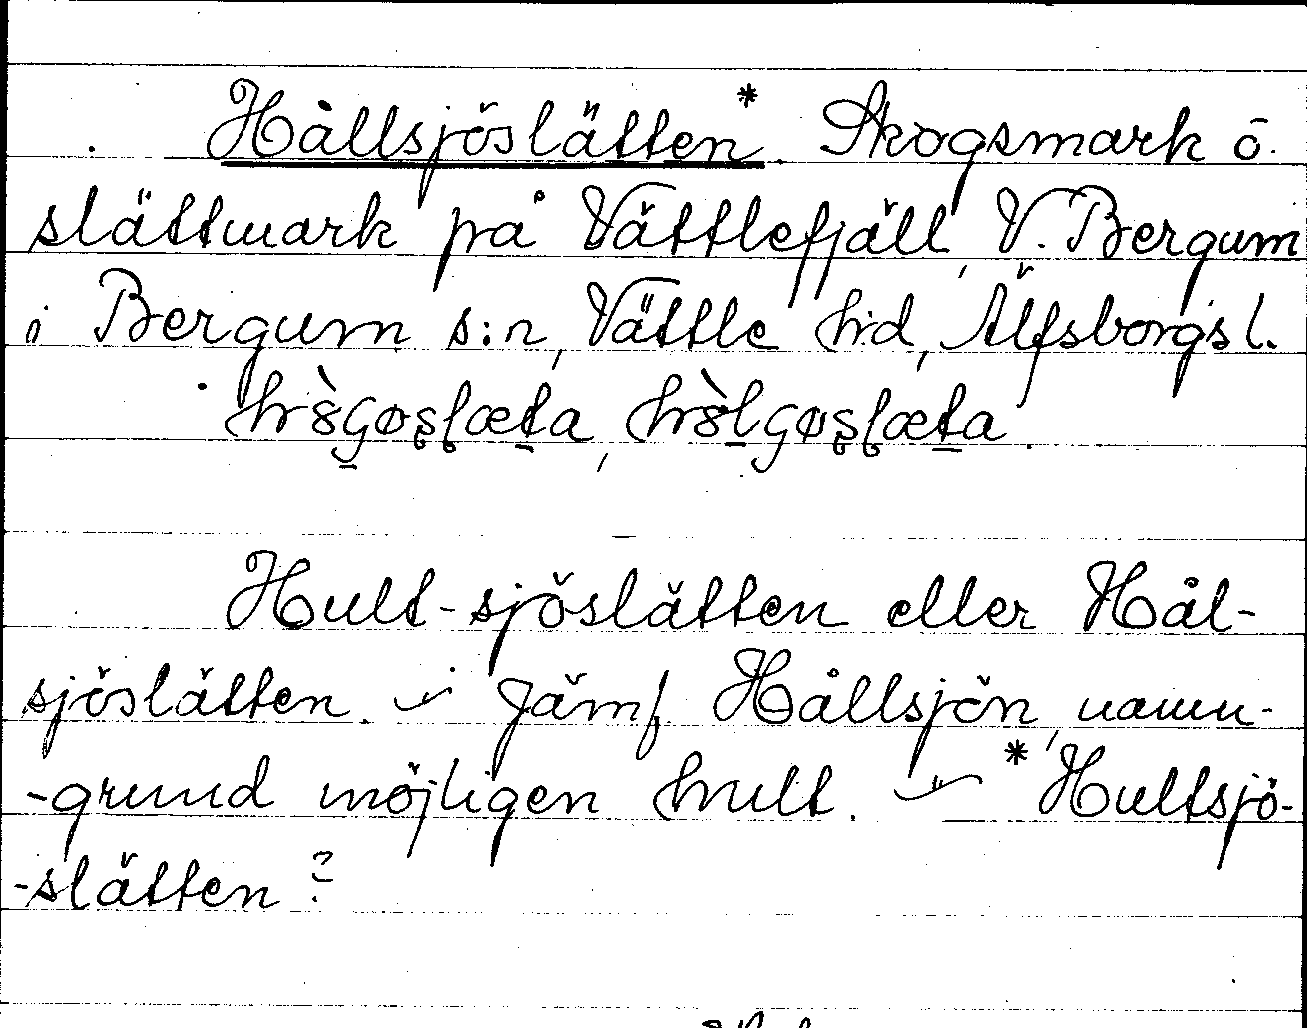 Hållsjöslätten* Skogsmark o.
slättmark på Vättlefjäll, V. Bergum
i Bergum s:n, Vättle hd, Älfsborgs l.
Hult-sjöslätten eller Hål-
sjöslätten. Jämf Hållsjön, namn-
-grund möjligen hult. * Hultsjö-
-slätten?